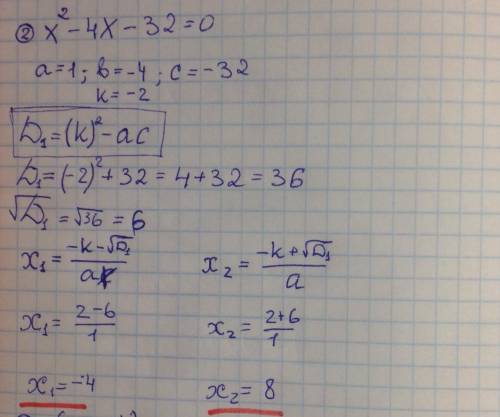 ② x² - 4x - 32 = 0
a = 1 ; b = -4 ; c = -32
k = -2
D₁ = (k)² - ac
D₁ = (-2)² + 32 = 4 + 32 = 36
√D₁ = √36 = 6
x₁ = (-k - √D₁)/a x₂ = (-k + √D₁)/a
x₁ = (2-6)/1 x₂ = (2+6)/1
x₁ = -4 x₂ = 8